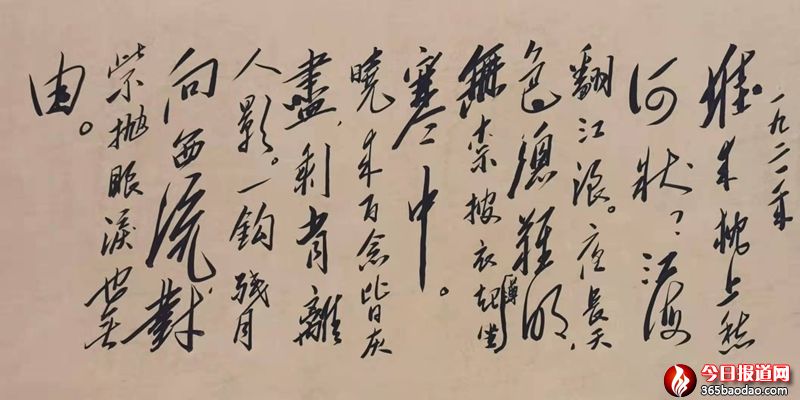 一九二一年
堆来枕上愁
何状？江海
翻江浪。夜長天
色總難明，
無奈披衣起坐薄
寒中。
曉来百念皆灰
盡，剩有離
人影。一鈎残月
向西流，對
此不抛眼淚也無
由。
今日报道网
365baodao.com